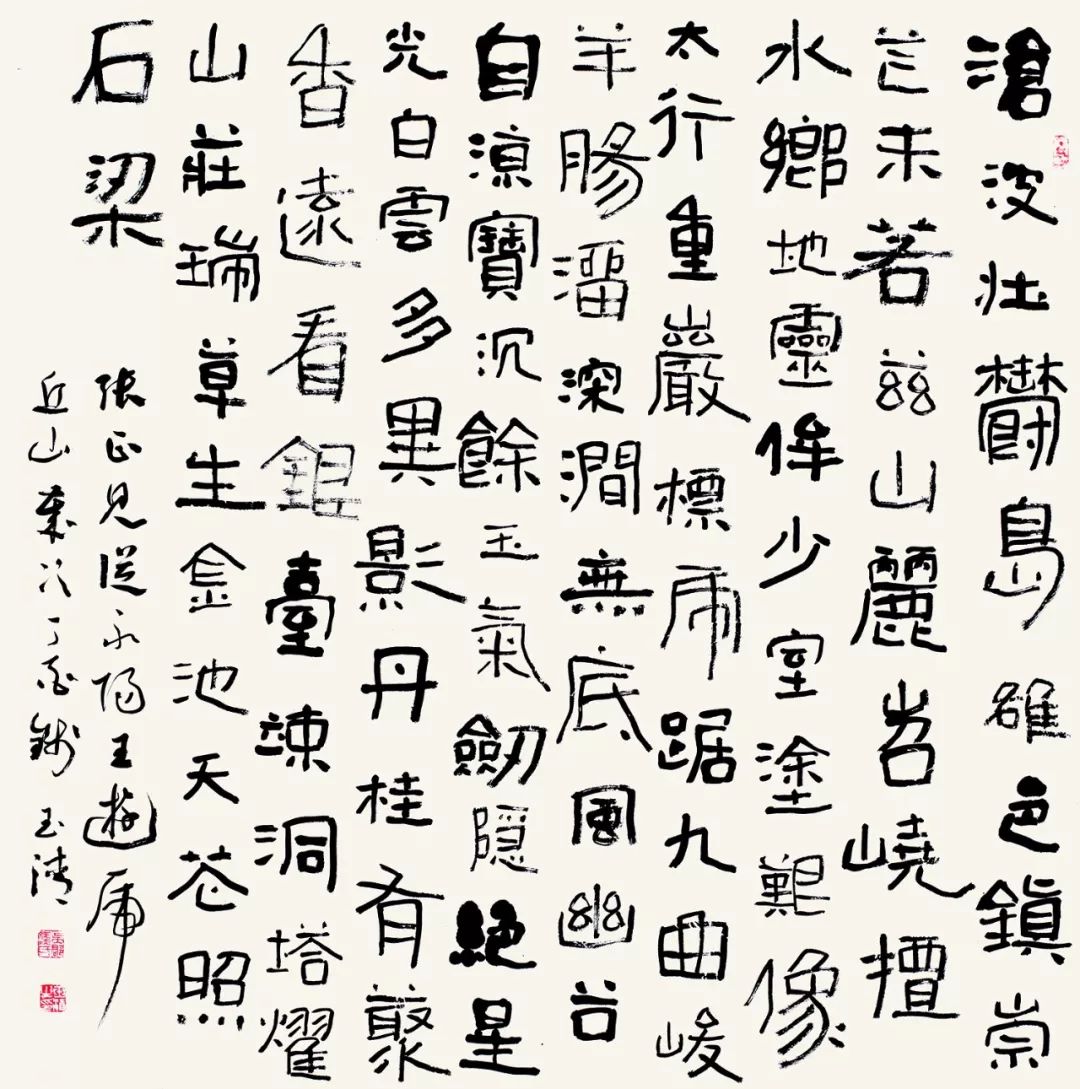 滄波壯鬱島雒邑鎮崇
芒未若茲山麗岧嶢擅
水鄉地靈侔少室塗艱像
太行重巖標虎踞九曲峻
羊腸溜深澗無底風幽谷
自涼寶沉餘玉氣劒隱絕星
光白雲多異影丹桂有叢
香遠看銀臺竦洞塔耀
山莊瑞草生金池天花照
石梁
張正見從永陽王遊虎
丘山歲次丁酉錢玉清